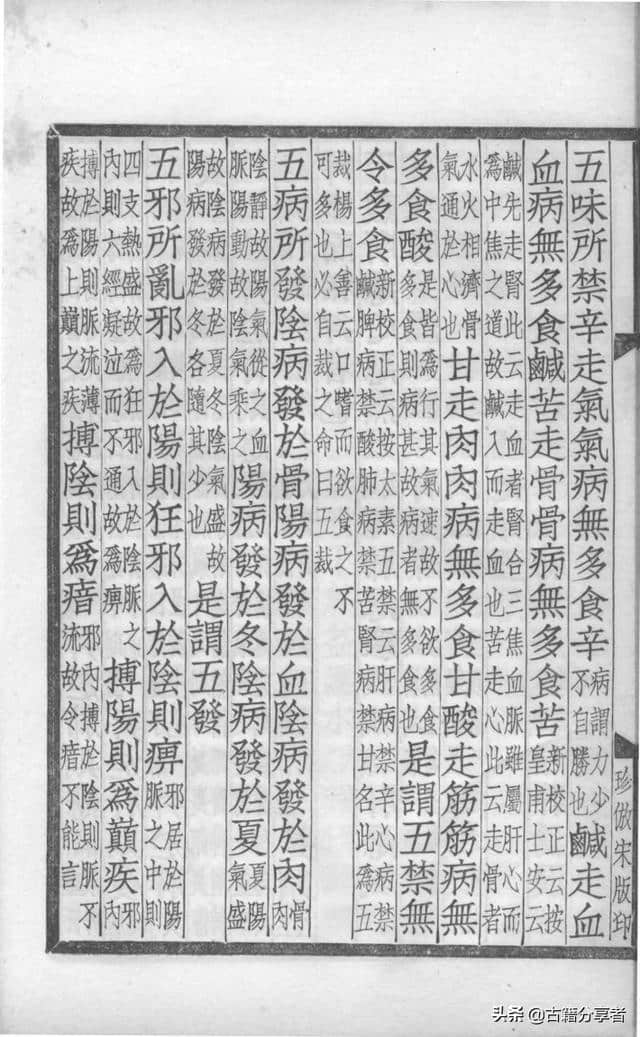 五味所禁辛走氣氣病無多食辛病謂力少不自勝也鹹走血
血病無多食鹹苦走骨骨病無多食苦新校正云按皇甫士安云
鹹先走腎此云走血者腎合三焦血脈雖屬肝心而
爲中焦之道故鹹入而走血也苦走心此云走骨者
水火相濟骨氣通於心也甘走肉肉病無多食甘酸走筋筋病無
多食酸是皆爲行其氣速故不欲多食多食則病甚故病者無多食也是謂五禁無
令多食新校正云按太素五禁云肝病禁辛心病禁鹹脾病禁酸肺病禁苦腎病禁甘名此爲五
裁楊上善云口嗜而欲食之不
可多也必自裁之命曰五裁
五病所發陰病發於骨陽病發於血陰病發於肉骨肉
陰靜故陽氣從之血脈陽動故陰氣乘之陽病發於冬陰病發於夏夏陽氣盛
故陰病發於夏冬陰氣盛故陽病發於冬各隨其少也是謂五發
五邪所亂邪入於陽則狂邪入於陰則痹邪居於陽脈之中則
四支熱盛故爲狂邪入於陰脈之內則六經凝泣而不通故爲痹搏陽則爲巔疾邪內
搏於陽則脈流薄疾故爲上巔之疾搏陰則爲瘖邪內搏於陰則脈不流故令瘖不能言
珍倣宋版印
头条 @古籍分享者